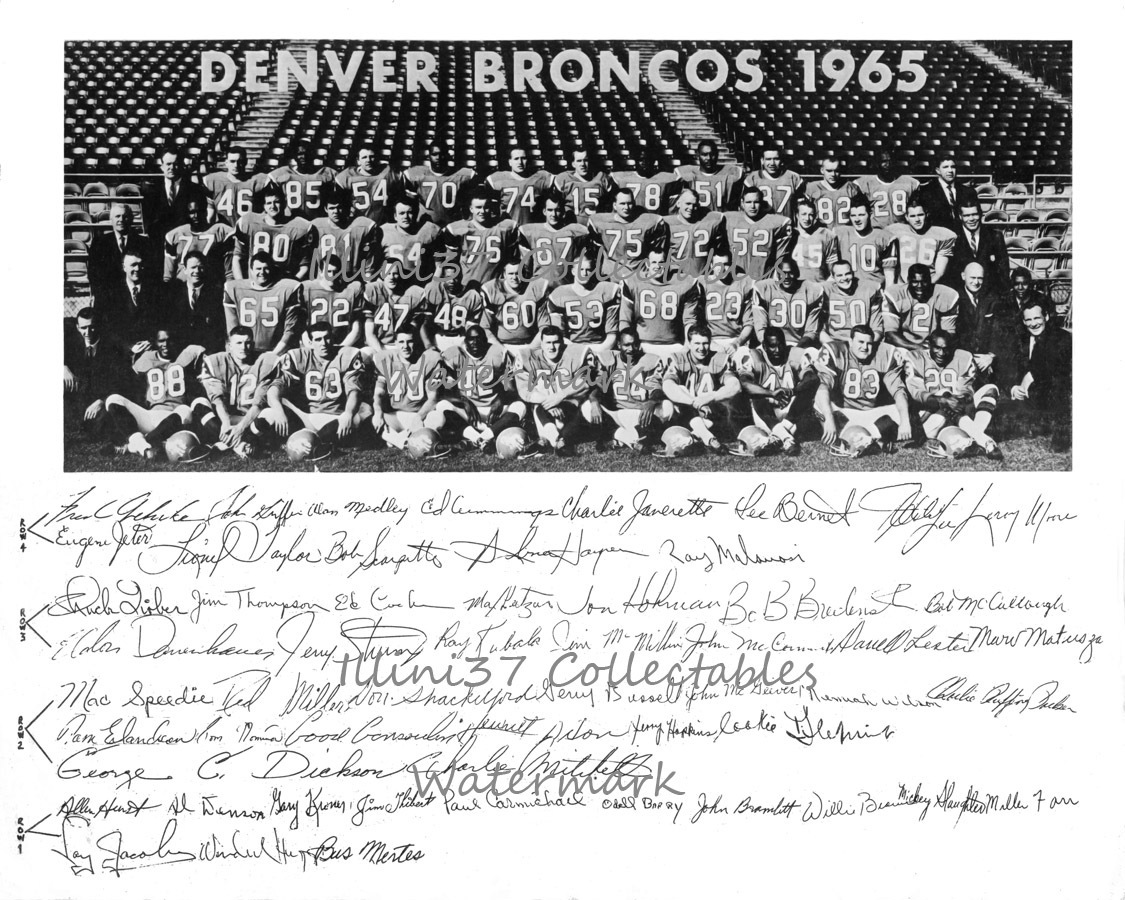 DENVER BRONCOS 1965
46 85 54 70 74 15 78 51 37 82 28
77 80 81 64 76 67 75 72 52 15 10 26
65 22 47 48 60 53 68 23 30 50 2
88 12 63 40 42 24 14 44 83 29
Illini37 Collectables
Watermark
ROW 4
Fred Gehrke John Griffin Alan Medley Ed Cummings Charlie Janerette Lee Bernet Leroy Moore
Eugene Jeter Lionel Taylor Bob Scarpitto Ray Malavasi
ROW 3
Jim Thompson Ed Cooke Max Leetzow Jon Hohman Bob Breitenstein Bob McCullough
Eldon Danenhauer Jerry Sturm Ray Kubala Jim McMillin John McCormick Darrell Lester Marv Matuszak
Illini37 Collectables
ROW 2
Mac Speedie Red Miller Don Shackelford Gerry Bussell John McGeever Nemiah Wilson Charlie
Goose Gonsoulin Jerry Hopkins Cookie Gilchrist
George C. Dickson Charlie Mitchell
Watermark
ROW 1
Allen Hurst Al Denson Gary Kroner Jim Thibert Paul Carmichael Odell Barry John Bramlett Willie Brown Mickey Slaughter Miller Farr
Ray Jacobs Wendell Hayes Bus Mertes